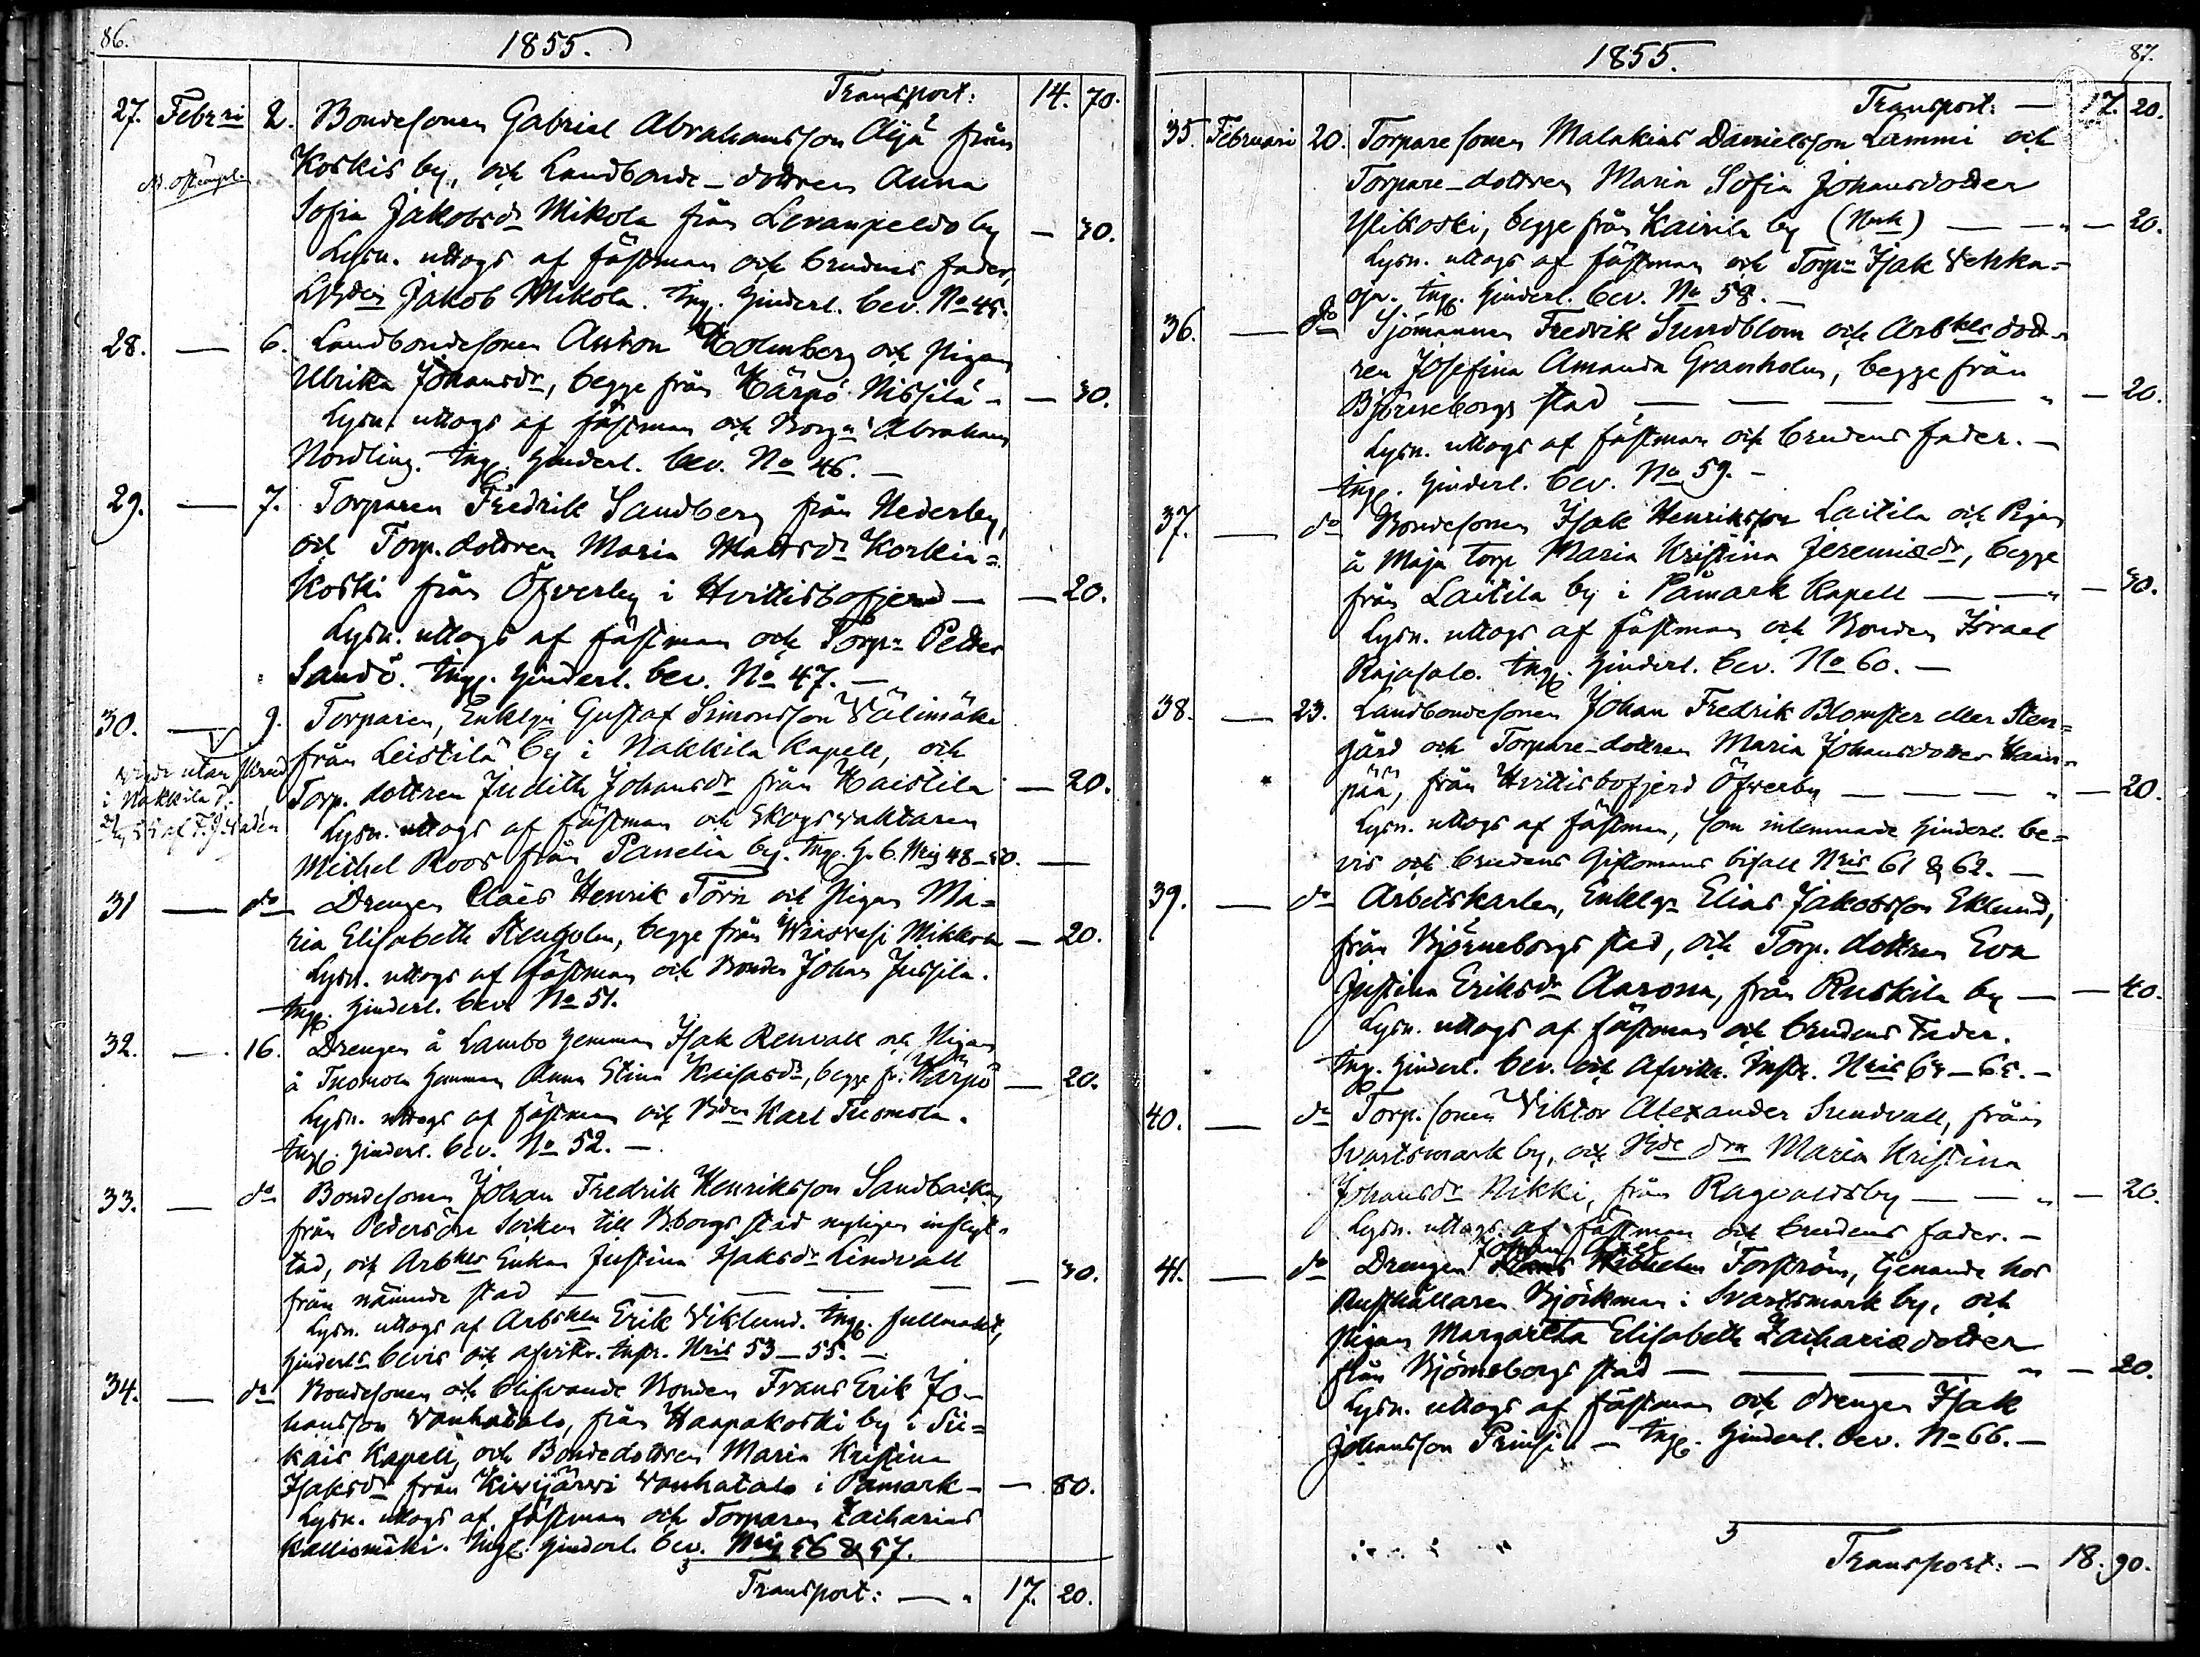 86.
1855.
Transport: 14. 70.
27. Febr:ri 2. Bondesonen Gabriel Abrahamsson Äijä från
Koskis by, och Landbonde-dottren Anna
Sofia Jakobsdr Mikola från Levanpelto by — 30.
Lysn. uttogs af fästman och brudens fader,
Jakob Mikola. Ing. hinderl. bev. No 45.
28. — 6. Landbondesonen Anton Holmberg och Pigan
Ulrika Johansdr, begge från Härpö Nissilä — 30.
Lysn. uttogs af fästman och Borgn Abraham
Nordling. Ing. hinderl. bev. No 46. —
29. — 7. Torparen Fredrik Sandberg från Nederby,
och Torp. dottren Maria Mattsdr Korkia=
koski från Öfverby i Hvittisbofjerd — — 20.
Lysn. uttogs af fästman och Torpn Petter
Sandö. Ing. hinderl. bev. No 47. —
30. — 9. Torparen, Enklgn Gustaf Simonsson Välimäki
från Leistilä by i Nakkila Kapell, och
Vigde utan
i Nakkila d.
Torp. dottren Judith Johansdr från Haistila — 20.
Lysn. uttogs af fästman och Skogsvaktaren
Michel Roos från Panelia by. Ing. h. b. Nris 48–50. —
31 — do Drengen Claës Henrik Törn och Pigan Ma=
ria Elisabeth Stenholm, begge från Mikkola — 20.
Lysn. uttogs af fästman och Bonden Johan Jussila.
Ing. hinderl. bev. No 51.
32. — 16. Drengen å Lambo hemman Isak Renvall och Pigan
å Tuomola hemman Anna Stina Kaisasdr, begge fr. Härpö — 20.
Lysn. uttogs af fästman och Bdn Karl Tuomola.
Ing. hinderl. bev. No 52. —
33. — do Bondesonen Johan Fredrik Henriksson Sandbacka
från Pedersöre Socken till Bborgs stad nyligen inflyt=
tad, och Arbkls Enkan Justina Isaksdr Lindvall
från nämnde stad — — — — 30.
Lysn. uttogs af Arbskln Erik Viklund. Ing. fullmakt,
hinderls bevis och afvittr. instr. Nris 53–55. —
34. — do Bondesonen och blifvande Bonden Frans Erik Jo=
hansson Vanhatalo, från Haapakoski by i Sii=
kais Kapell, och Bondedottren Maria Kristina
Isaksdr från Kivijärvi Vanhatalo i Påmark — — 80.
Lysn. uttogs af fästman och Torparen Zacharias
Kalliomäki. Ing. hinderl. bev. Nris 56 & 57.
Transport: — 17. 20.
87.
1855.
Transport: — 17. 20.
35. Februari 20. Torparesonen Malakias Danielsson Lammi och
Torpare-dottren Maria Sofia Johansdotter
Ylikoski, begge från Kairila by — — 20.
Lysn. uttogs af fästman och Torpn Isak Vehka=
oja. Ing. hinderl. bev. No 58. —
36. — do Sjömannen Fredrik Sundblom och Arbkls dott=
ren Josefina Amanda Granholm, begge från
Björneborgs stad — — — — — 20.
Lysn. uttogs af fästman och brudens fader. —
Ing. hinderl. bev. No 59. —
37. — do Bondesonen Isak Henriksson Laitila och Pigan
å Maja torp Maria Kristina Jeremiædr, begge
från Laitila by i Påmark Kapell — — — 30.
Lysn. uttogs af fästman och Bonden Israel
Rajasalo. Ing. hinderl. bev. No 60. —
38. — 23. Landbondesonen Johan Fredrik Blomster eller Sten=
gård och Torpare-dottren Maria Johansdotter Haan=
pää, från Hvittisbofjerd Öfverby — — — — 20.
Lysn. uttogs af fästman, som inlemnade hinderl. be=
vis och brudens Giftomans bifall Nris 61 & 62. —
39. — do Arbetskarlen, Enklgn Elias Jakobsson Eklund,
från Björneborgs stad, och Torp. dottren Eva
Justina Eriksdr Aarona, från Ruskila by — — 40.
Lysn. uttogs af fästman och brudens Fader.
Ing. hinderl. bev. och Afvittr. Instr. Nris 63–65. —
40. — do Torp. sonen Viktor Alexander Sundvall, från
Svartsmark by, och Bde drn Maria Kristina
Johansdr Nikki, från Ragvaldsby — — — 20.
Lysn. uttogs af fästman och brudens fader. —
41. — do Drengen Johan Axel Forsström, tjenande hos
Rusthållaren Björkman i Svartsmark by, och
Pigan Margaretha Elisabeth Zachariædotter
från Björneborgs stad — — — — 20.
Lysn. uttogs af fästman och drengen Isak
Johansson Prinsi — Ing. hinderl. bev. No 66. —
Transport: — 18. 90.